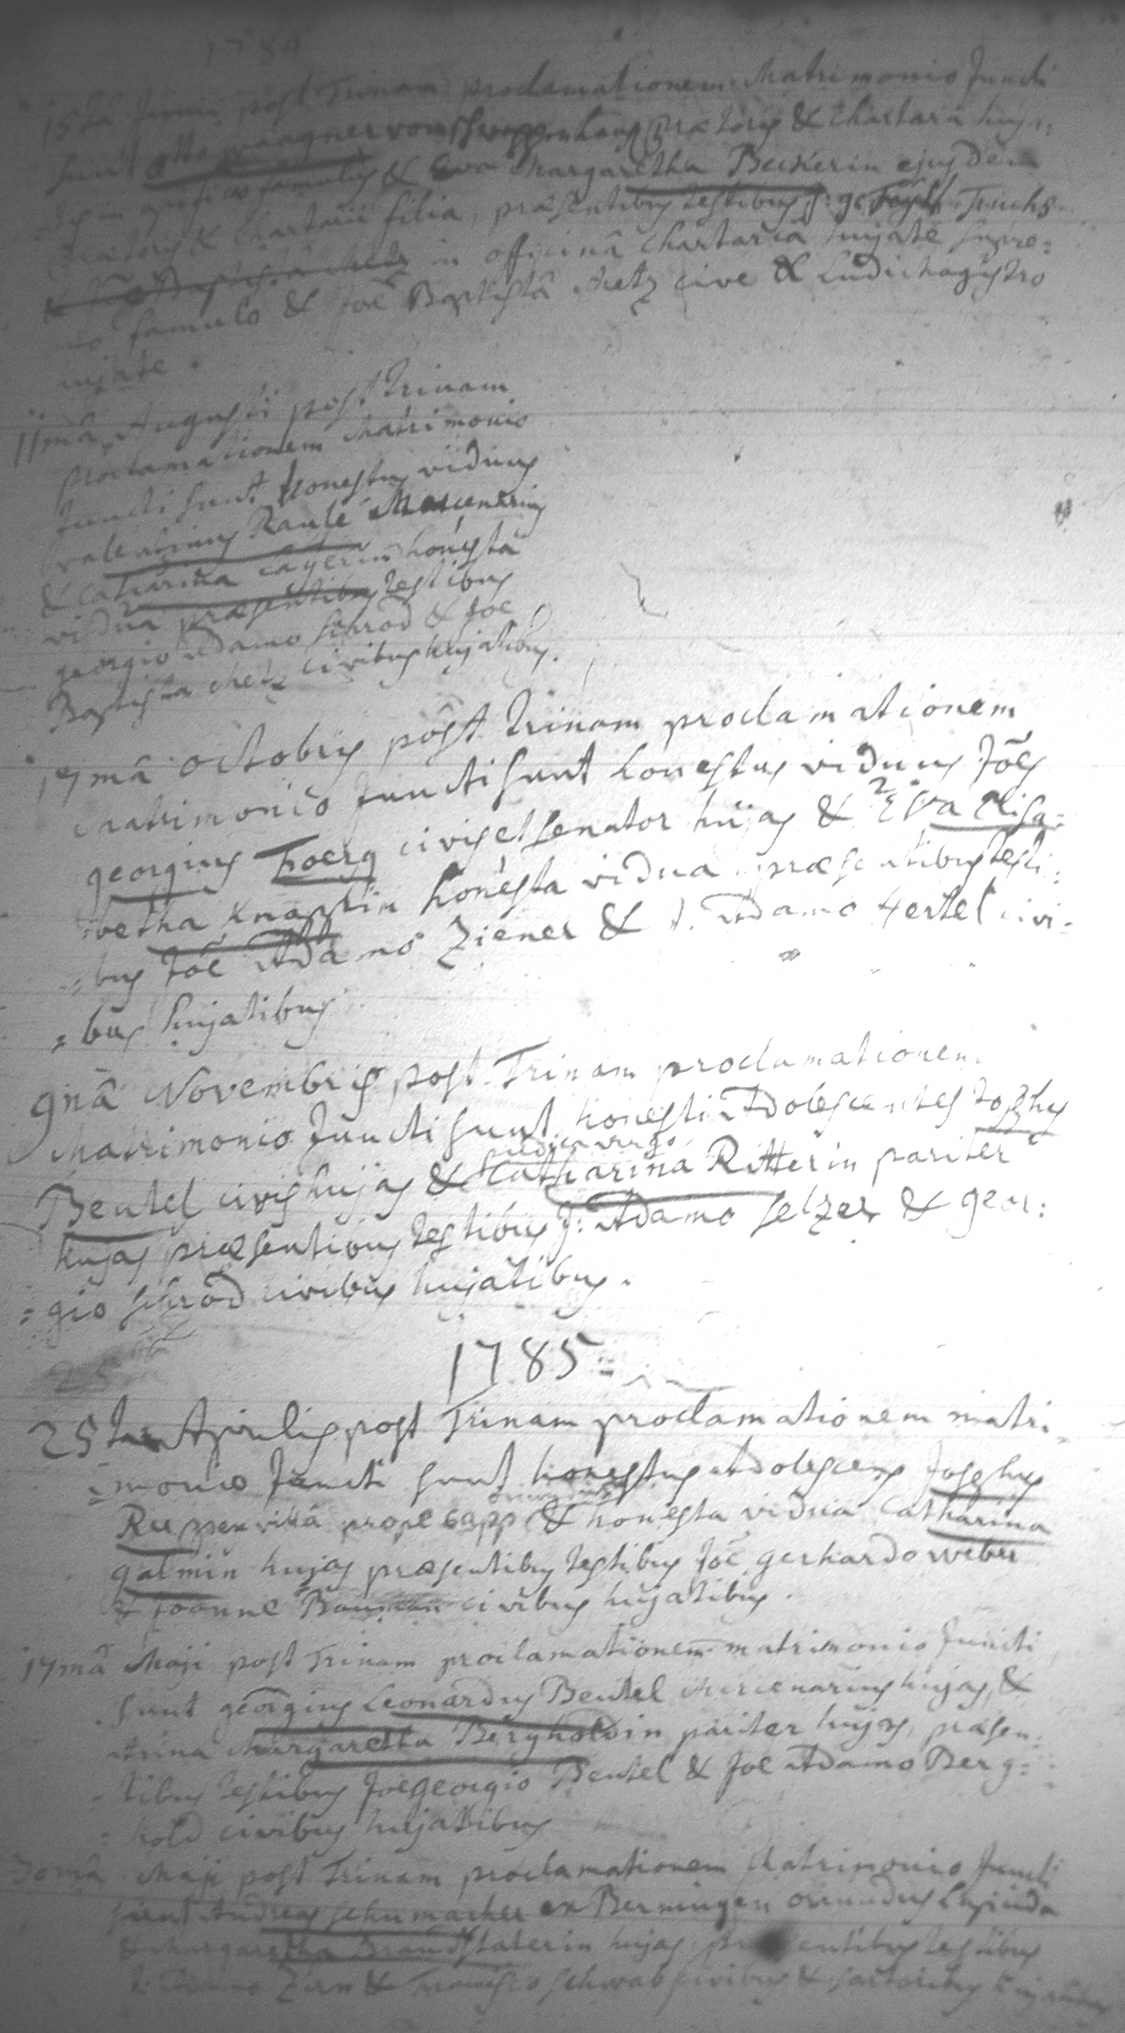 1784
15ta Junii post Trinam proclamationem Matrimonio Juncti
sunt otto waagner von praetoris & Chartarii huja=
tis famulus & Eva Margaretha Beckerin ejusdem
praetoris & Chartarii filia, praesentibus testibus J: Truchs
in officinâ Chartariâ hujate supre=
mo famulo & Joe Baptistâ Metz cive & ludi magistro
hujate.
11mâ Augusti post trinam
proclamationem Matrimonio
Juncti sunt honestus viduus
valentinus Mercenarius
& Catharina honesta
vidua praesentibus testibus
georgio Adamo schrod & Joe
Baptista Metz civibus hujatibus.
17mâ octobris post trinam proclamationem
Matrimonio Juncti sunt honestus viduus Jões
georgius civis et senator hujas & Eva Elisa=
=betha honesta vidua praesentibus testi=
=bus Jõe Adamo Ziener & J. Adamo Hertel civi=
=bus hujatibus
9nâ Novembris post Trinam proclamationem
Matrimonio Juncti sunt honesti Adolescentes Josephus
pudica virgo
Beutel civis hujas & Catharina Ritterin pariter
hujas praesentibus testibus J: Adamo selzer & geor=
=gio schrod civibus hujatibus.
1785
25ta Aprilis post Trinam proclamationem matri=
=monio Juncti sunt honestus Adolescens Josephus
Rupp & honesta vidua Catharina
galmin hujas praesentibus testibus Jõe gerhardo weber
& Joanne Bauman civibus hujatibus.
17mâ Maji post Trinam proclamationem matrimonio Juncti
sunt georgius Leonardus Beutel Mercenarius hujas, &
Anna Margaretha Bergholdin pariter hujas, praesen=
tibus testibus Joe georgio Beutel & Joe Adamo Berg=
hold civibus hujatibus
30mâ Maji post Trinam proclamationem Matrimonio Juncti
sunt Andreas schumacher ex oriundus
& Margaretha Brandstaterin hujas praesentibus testibus
J: Adamo Zien & Francisco schwab civibus & hujatibus